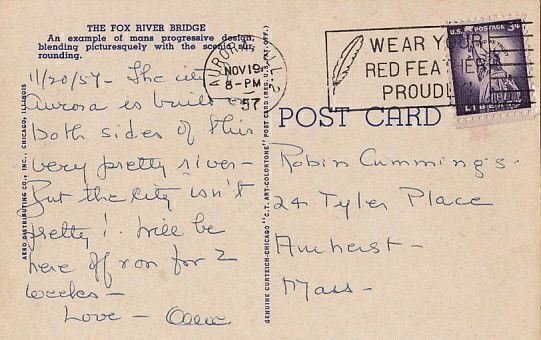 THE FOX RIVER BRIDGE
An example of mans progressive design,
blending picturesquely with the scenic sur-
rounding.
11/20/57 - The city
Aurora is built on
both sides of this
very pretty river -
But the city isn't
pretty! Will be
here off & on for 2
weeks -
Love -
AERO DISTRIBUTING CO., INC., CHICAGO, ILLINOIS
GENUINE CURTEICH-CHICAGO "C.T. ART-COLORTONE" POST CARD (REG. U.S. PAT. OFF.)
AURORA
NOV 19
8-PM
57
WEAR YOUR
RED FEATHER
PROUDLY
U.S. POSTAGE 3¢
LIBERTY
POST CARD
Robin Cummings -
24 Tyler Place
Amherst -
Mass -